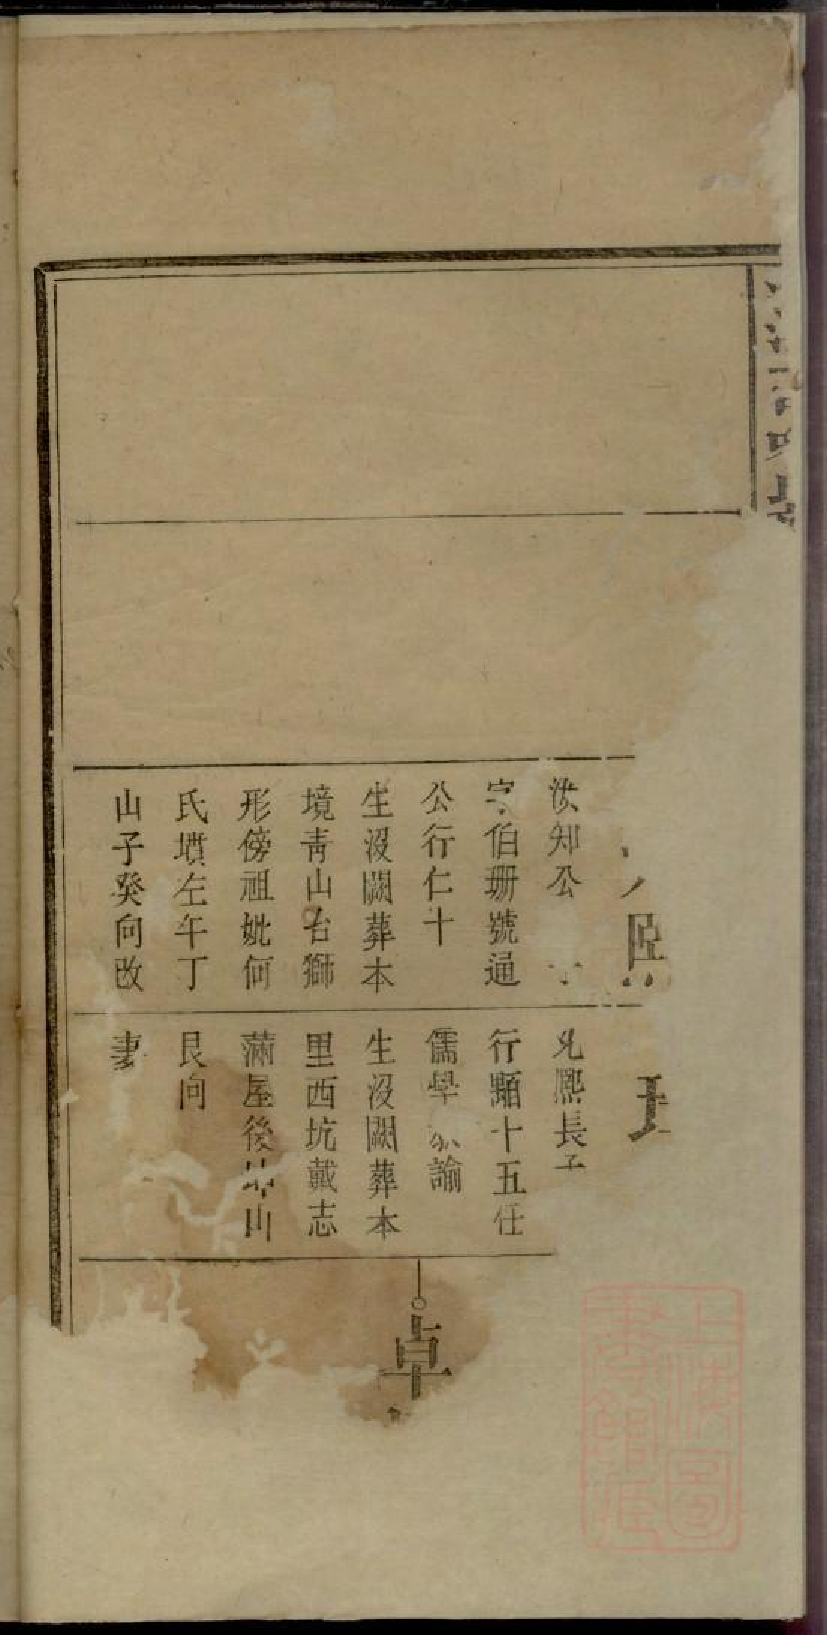 汝知公
字伯珊號通
公行仁十
生沒闕葬本
境靑山台獅
形傍祖妣何
氏墳左午丁
山子癸向改
熙長子
行顯十五任
儒學諭
生沒闕葬本
里西坑戴志
滿屋後山
艮向
妻
卓
上海圖
書館藏